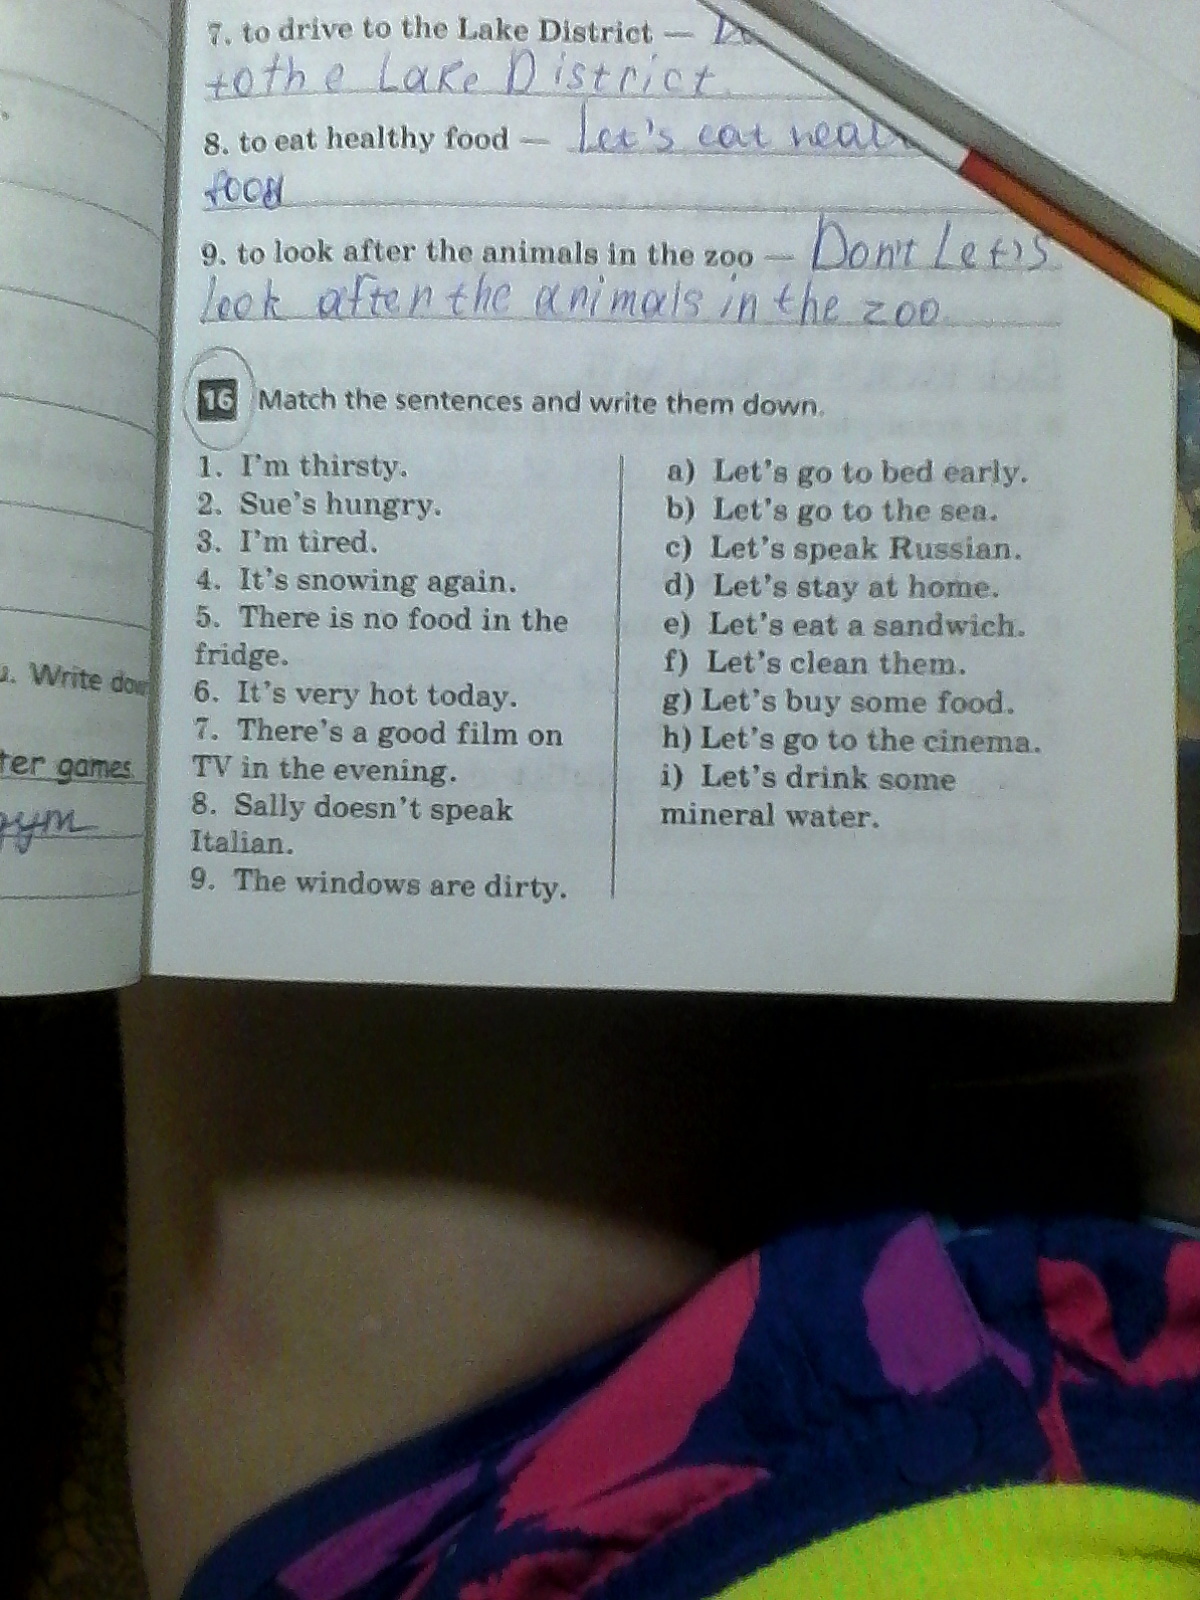 7. to drive to the Lake District —
tothe Lake District
8. to eat healthy food — Let's eat
food
9. to look after the animals in the zoo — Don't Let's
look after the animals in the zoo
16 Match the sentences and write them down.
1. I'm thirsty.
2. Sue's hungry.
3. I'm tired.
4. It's snowing again.
5. There is no food in the
fridge.
6. It's very hot today.
7. There's a good film on
TV in the evening.
8. Sally doesn't speak
Italian.
9. The windows are dirty.
a) Let's go to bed early.
b) Let's go to the sea.
c) Let's speak Russian.
d) Let's stay at home.
e) Let's eat a sandwich.
f) Let's clean them.
g) Let's buy some food.
h) Let's go to the cinema.
i) Let's drink some
mineral water.
. Write
games
gym